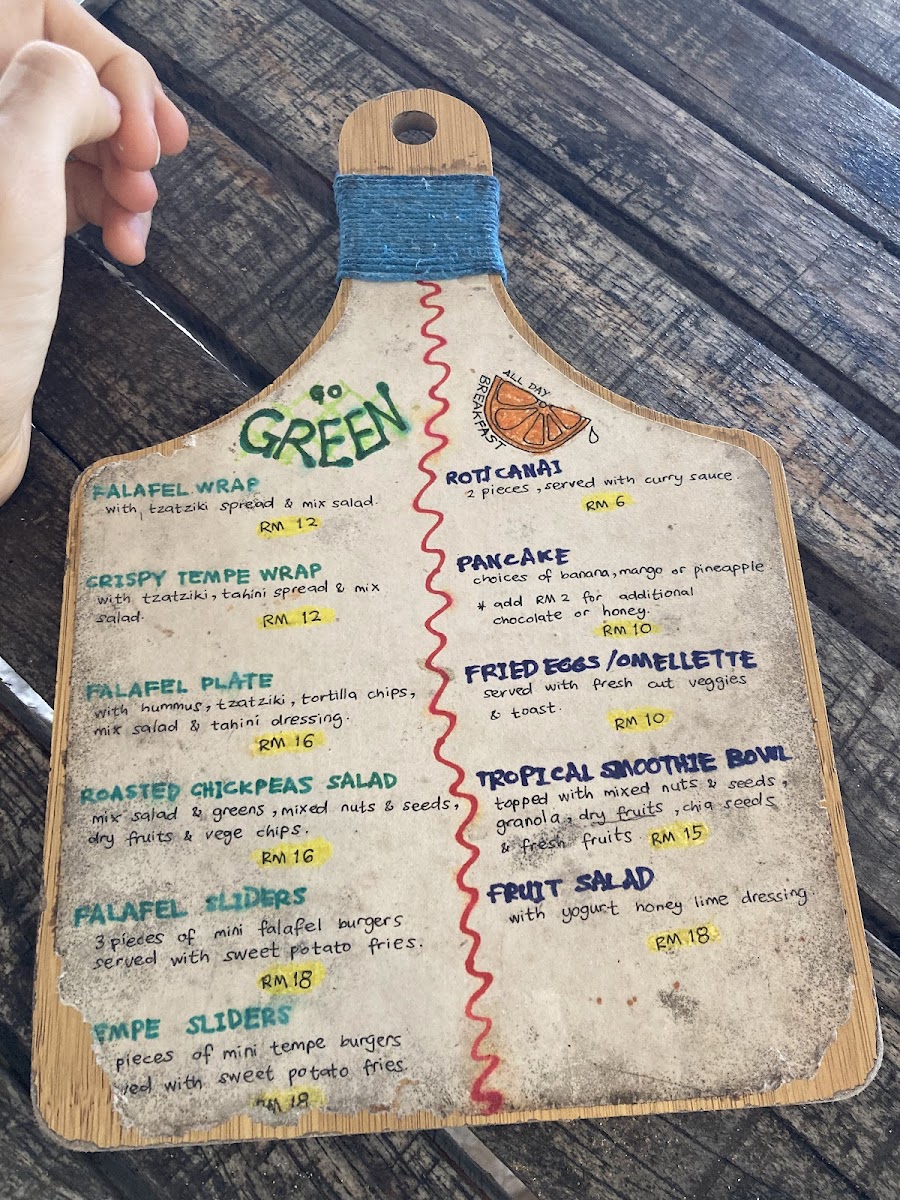 GO
GREEN
FALAFEL WRAP
with tzatziki spread & mix salad.
RM 12
CRISPY TEMPE WRAP
with tzatziki, tahini spread & mix
salad.
RM 12
FALAFEL PLATE
with hummus, tzatziki, tortilla chips,
mix salad & tahini dressing.
RM 16
ROASTED CHICKPEAS SALAD
mix salad & greens, mixed nuts & seeds,
dry fruits & vege chips.
RM 16
FALAFEL SLIDERS
3 pieces of mini falafel burgers
served with sweet potato fries.
RM 18
EMPE SLIDERS
pieces of mini tempe burgers
ved with sweet potato fries
RM 18
ALL DAY
BREAKFAST
ROTI CANAI
2 pieces, served with curry sauce.
RM 6
PANCAKE
choices of banana, mango or pineapple
* add RM 2 for additional
chocolate or honey.
RM 10
FRIED EGGS / OMELLETTE
served with fresh cut veggies
& toast.
RM 10
TROPICAL SMOOTHIE BOWL
topped with mixed nuts & seeds,
granola, dry fruits, chia seeds
& fresh fruits. RM 15
FRUIT SALAD
with yogurt honey lime dressing.
RM 18